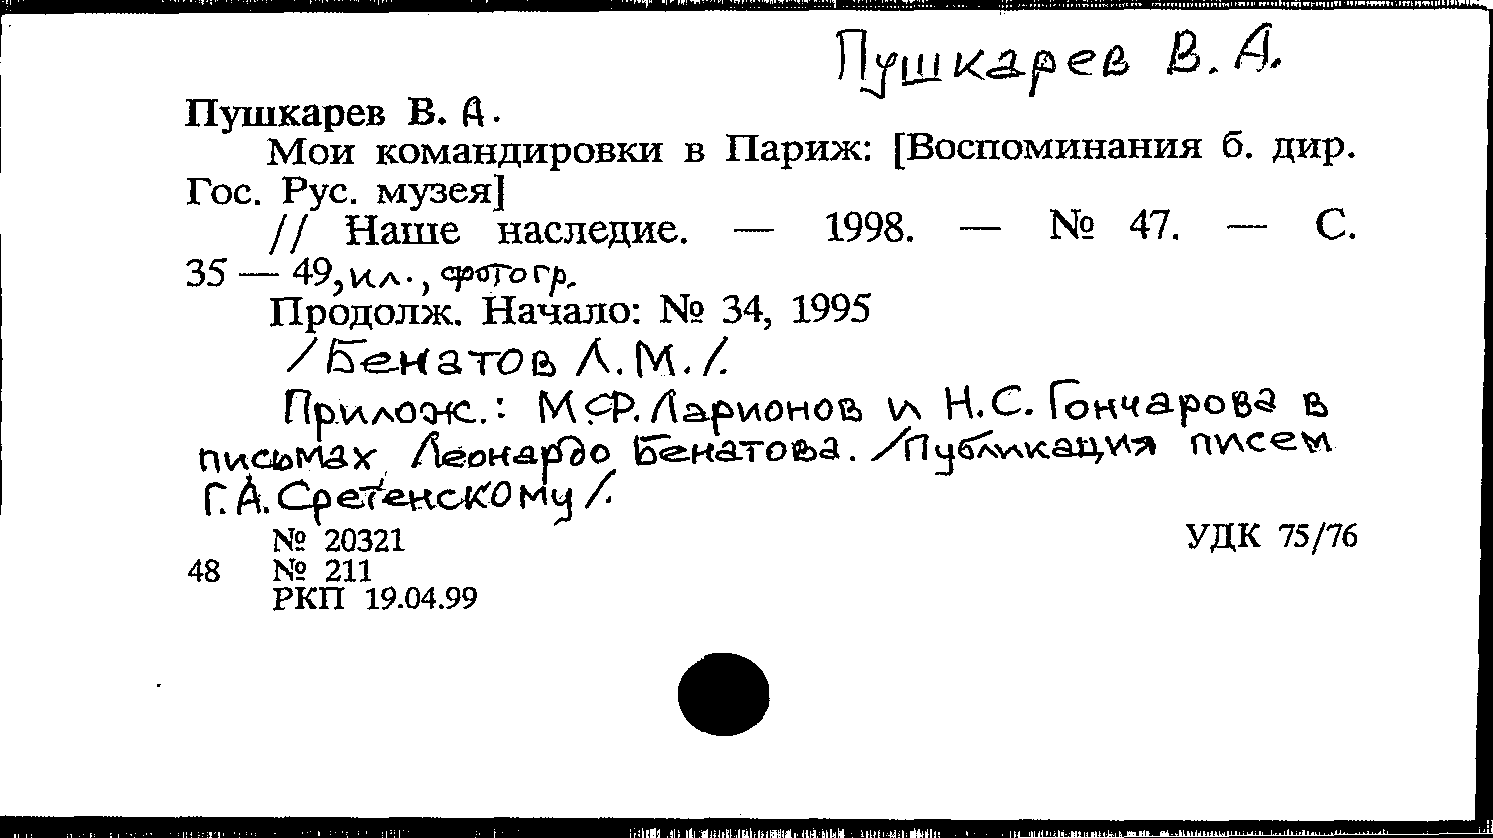 Пушкарев В. А.
Пушкарев В. А.
Мои командировки в Париж: [Воспоминания б. дир.
Гос. Рус. музея]
// Наше наследие. — 1998. — № 47. — С.
35 — 49, ил., фотогр.
Продолж. Начало: № 34, 1995
/Бенатов Л.М./.
Прилож.: М.Ф. Ларионов и Н.С. Гончарова в
письмах Леонардо Бенатова. /Публикация писем
Г.А. Сретенскому/.
№ 20321 УДК 75/76
48 № 211
РКП 19.04.99